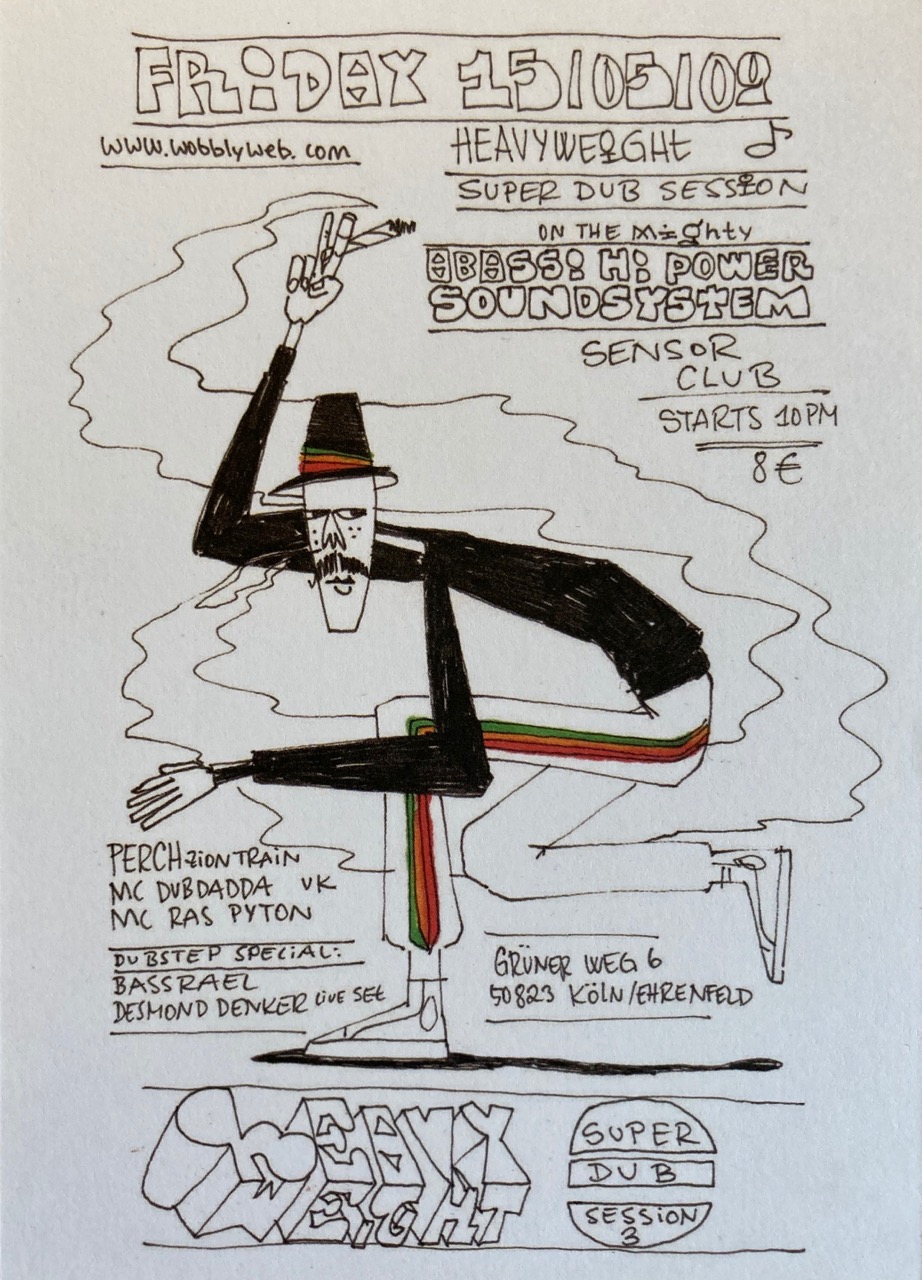 FRiDAY 15/05/09
www.wobblyweb.com
HEAVYWEIGHT
SUPER DUB SESSION
ON THE Mighty
ABASSi Hi POWER
SOUNDSYSTEM
SENSOR
CLUB
STARTS 10PM
8€
PERCH ZION TRAIN
MC DUBDADDA UK
MC RAS PYTON
DUBSTEP SPECiAL:
BASSRAEL
DESMOND DENKER LiVE SET
GRÜNER WEG 6
50823 KÖLN/EHRENFELD
HEAVY
WEiGHT
SUPER
DUB
SESSiON
3